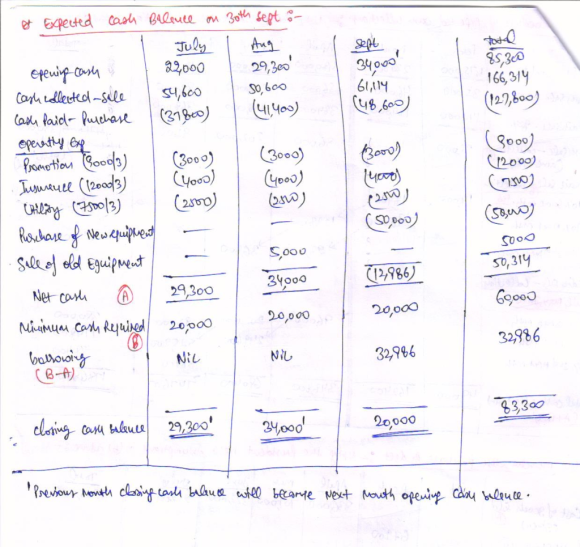 Expected Cash Balance on 30th Sept :-
July Aug Sept total
opening cash 22,000 29,300' 34,000' 85,300
Cash collected - Sale 54,600 50,600 61,114 166,314
Cash Paid - Purchase (37,800) (41,400) (48,600) (127,800)
operating Exp
Promotion (9000/3) (3000) (3000) (3000) (9000)
Insurance (12000/3) (4000) (4000) (4000) (12000)
Utility (7500/3) (2500) (2500) (2500) (7500)
Purchase of New equipment — — (50,000) (50,000)
Sale of old Equipment — 5,000 — 5000
Net cash (A) 29,300 34,000 (12,986) 50,314
Minimum Cash Required (B) 20,000 20,000 20,000 60,000
borrowing (B-A) Nil Nil 32,986 32,986
closing cash balance 29,300' 34,000' 20,000 83,300
'Previous month closing cash balance will became next month opening cash balance.